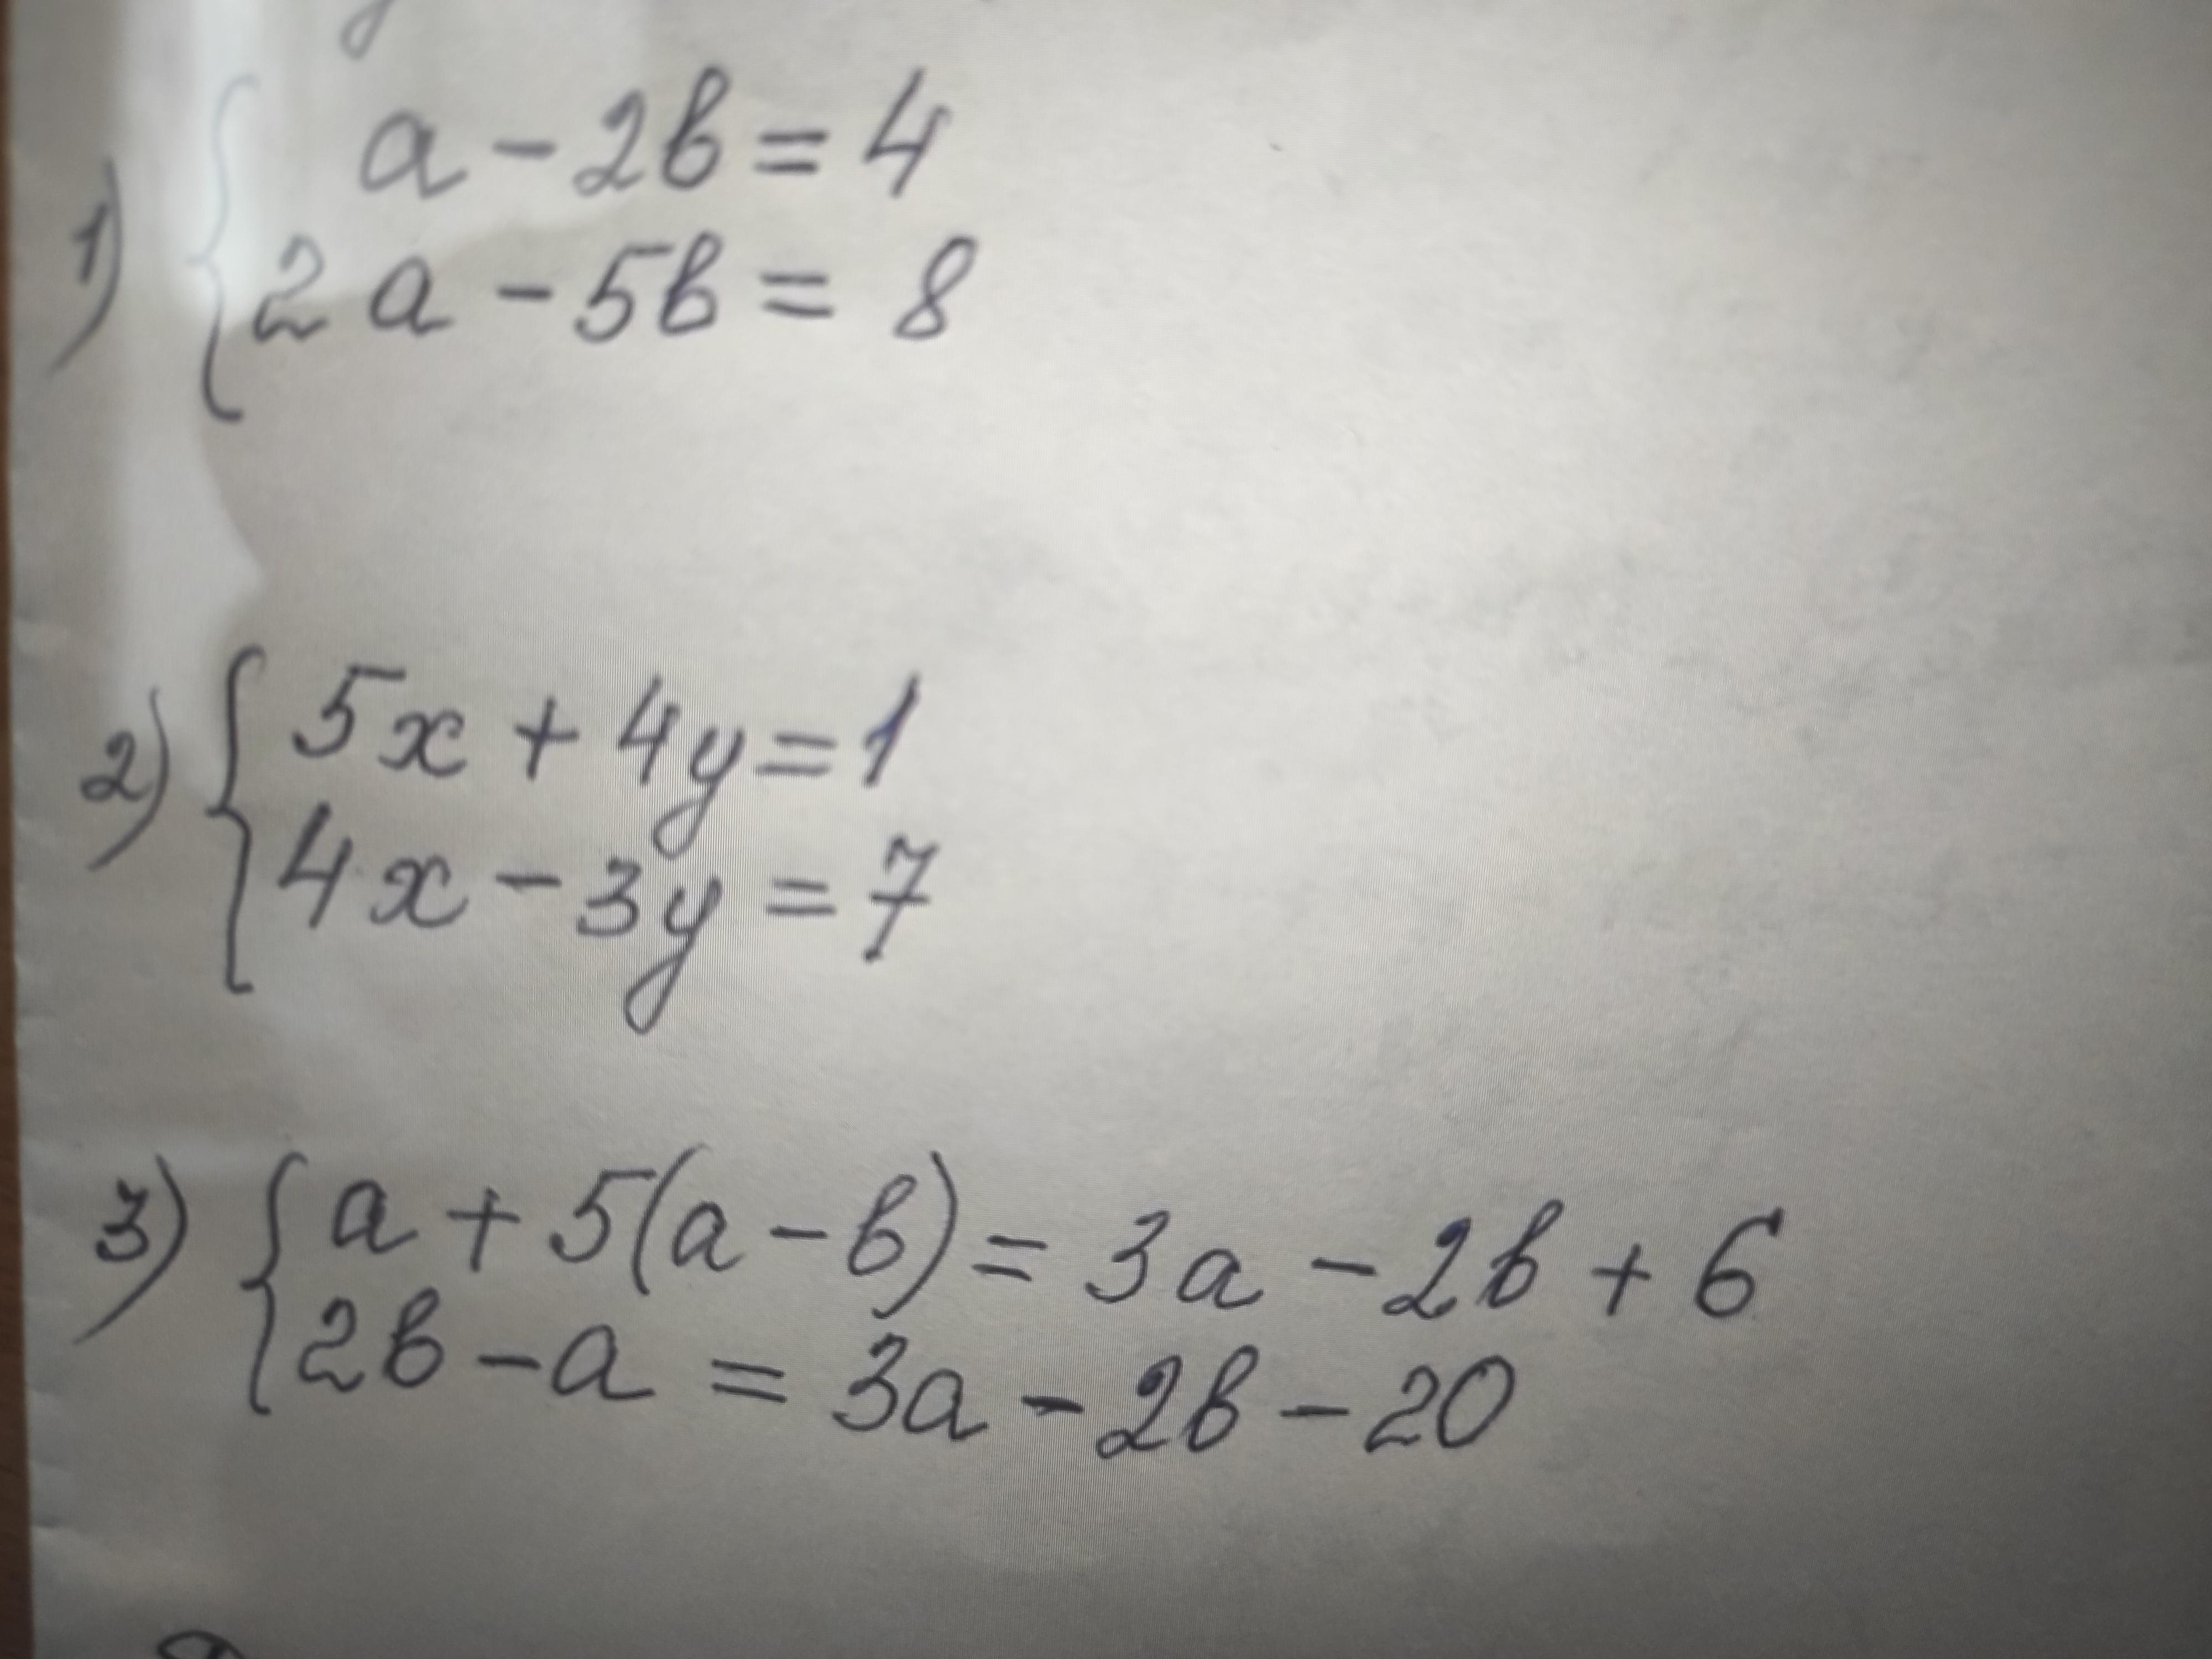 1) { a - 2b = 4
2a - 5b = 8
2) { 5x + 4y = 1
4x - 3y = 7
3) { a + 5(a - b) = 3a - 2b + 6
2b - a = 3a - 2b - 20